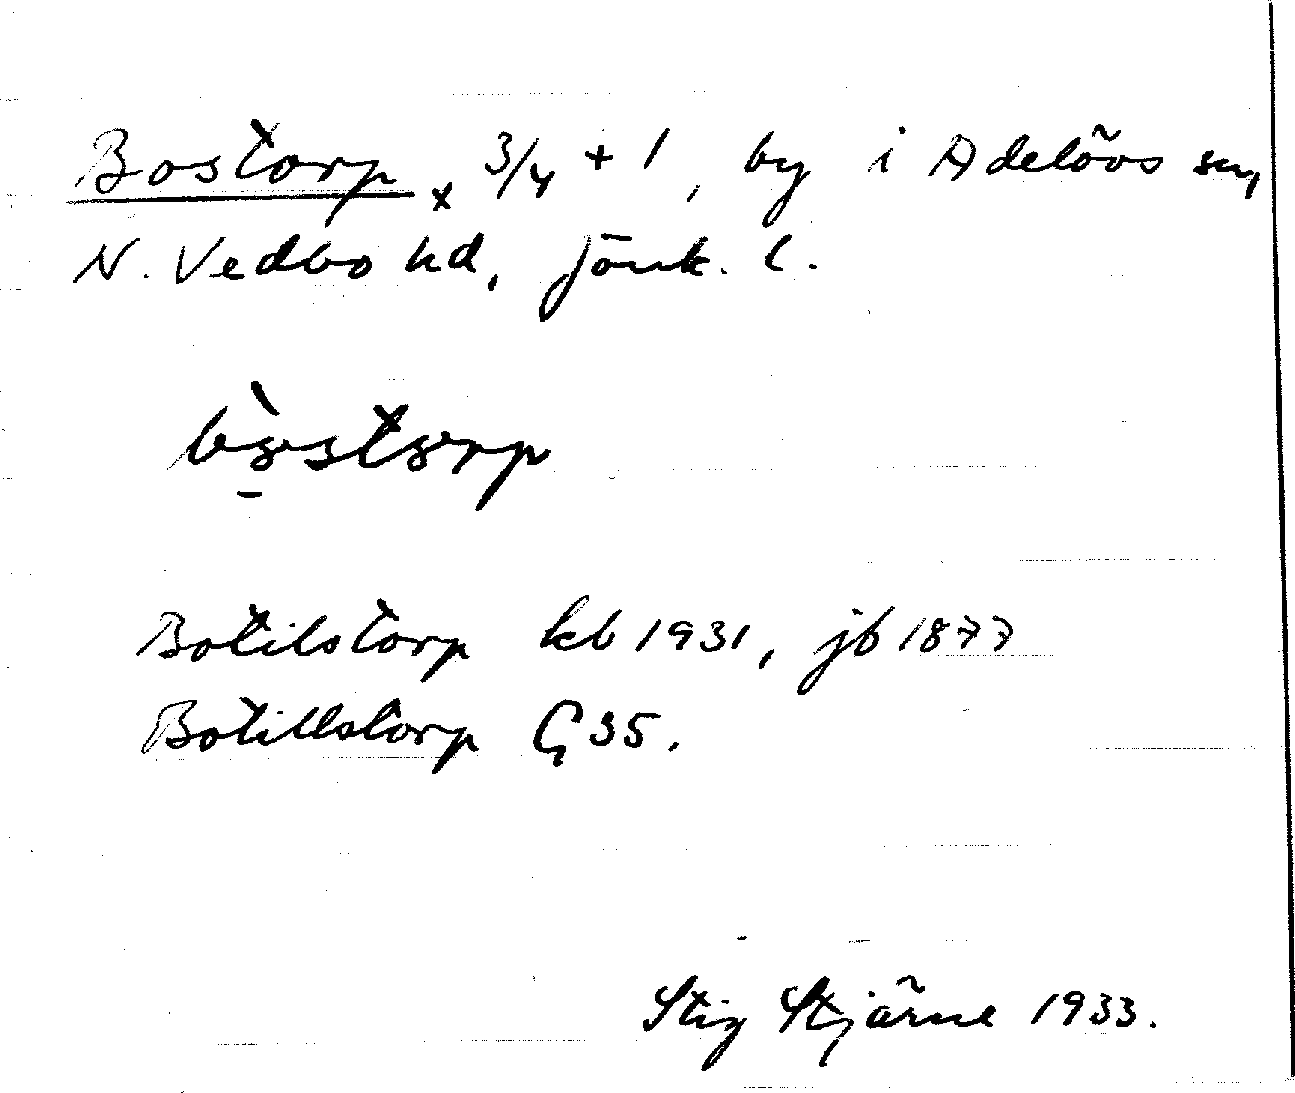 Bostorp x 3/4 + 1, by i Adelövs sn,
N. Vedbo hd, Jönk. l.
Botilstorp kb 1931, jb 1877
Botillstorp G 35.
Stig Stjärne 1933.